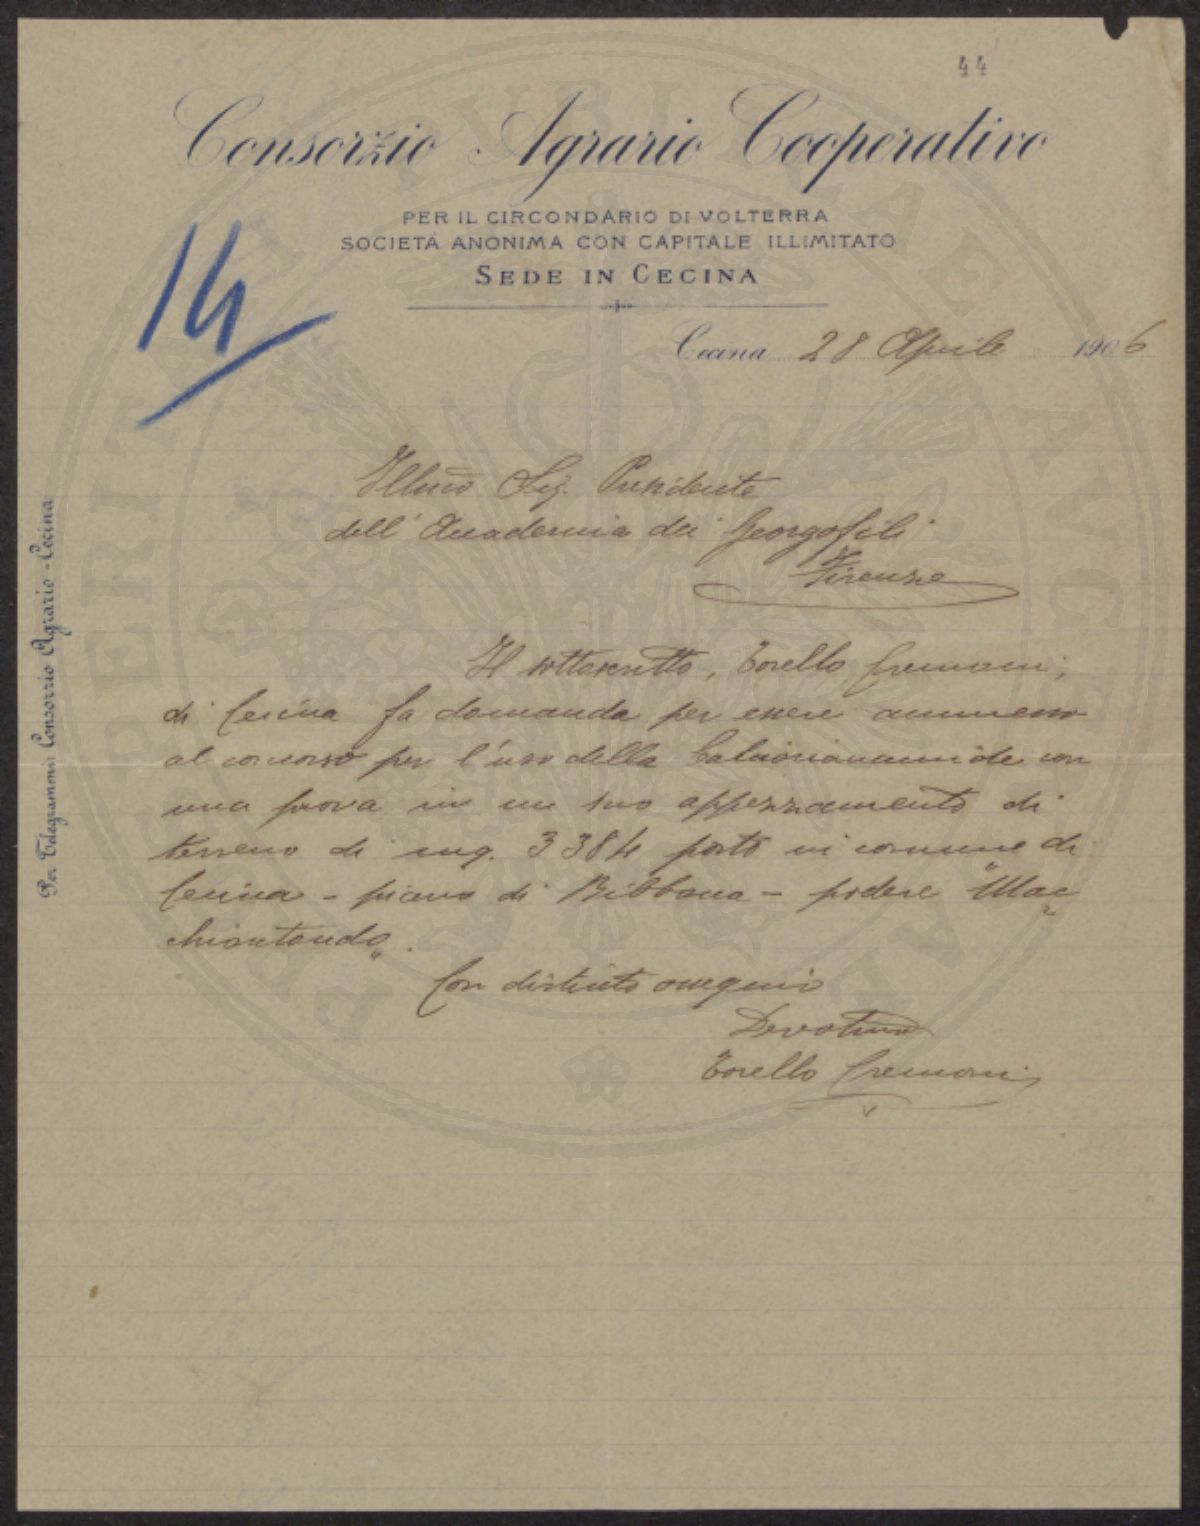 44
Consorzio Agrario Cooperativo
PER IL CIRCONDARIO DI VOLTERRA
SOCIETÀ ANONIMA CON CAPITALE ILLIMITATO
SEDE IN CECINA
14
Cecina 28 Aprile 1906
Illmo Sig. Presidente
dell'Accademia dei Georgofili
Firenze
Il sottoscritto, Torello Cremoni,
di Cecina fa domanda per essere ammesso
al concorso per l'uso della Calciocianamide con
una prova in un suo appezzamento di
terreno di mq. 3384 posto in comune di
Cecina - piano di Bibbona - podere "Mac
chiontondo".
Con distinto ossequio
Devotmo
Torello Cremoni
Per Telegrammi: Consorzio Agrario - Cecina